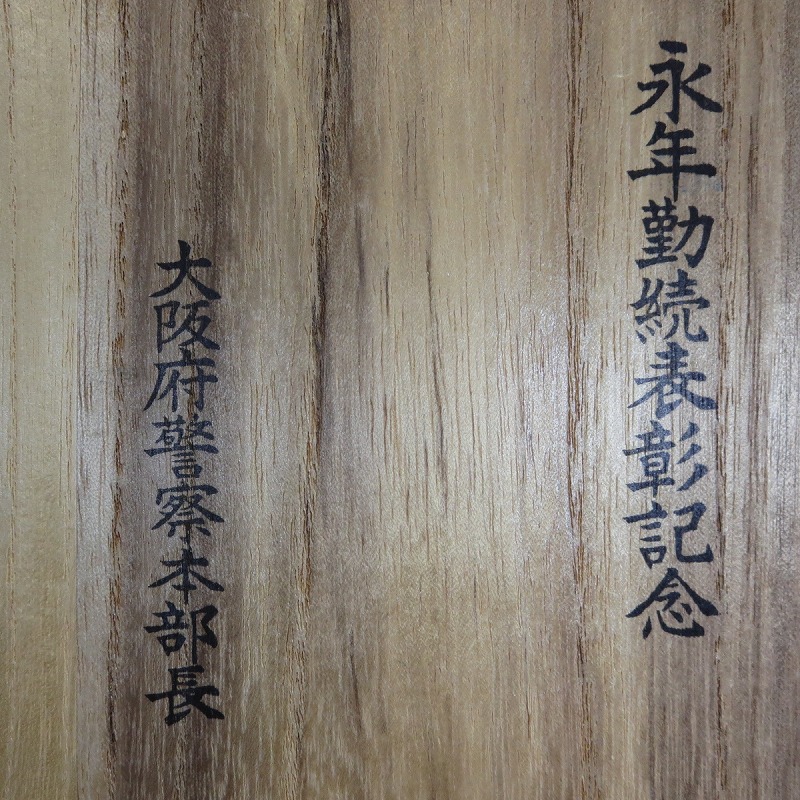 永年勤続表彰記念
大阪府警察本部長